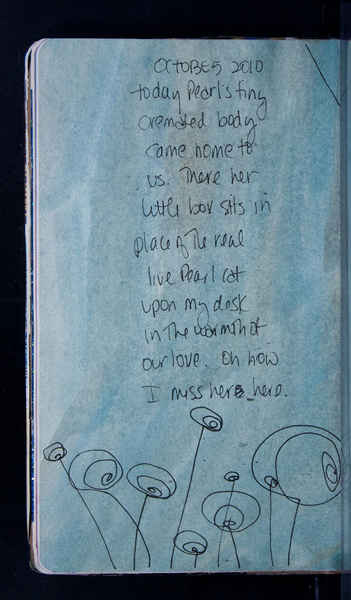 OCTOBER 5 2010
today Pearl's tiny
cremated body
came home to
us. There her
little box sits in
place of the real
live Pearl cat
upon my desk
in the warmth of
our love. Oh how
I miss her here.